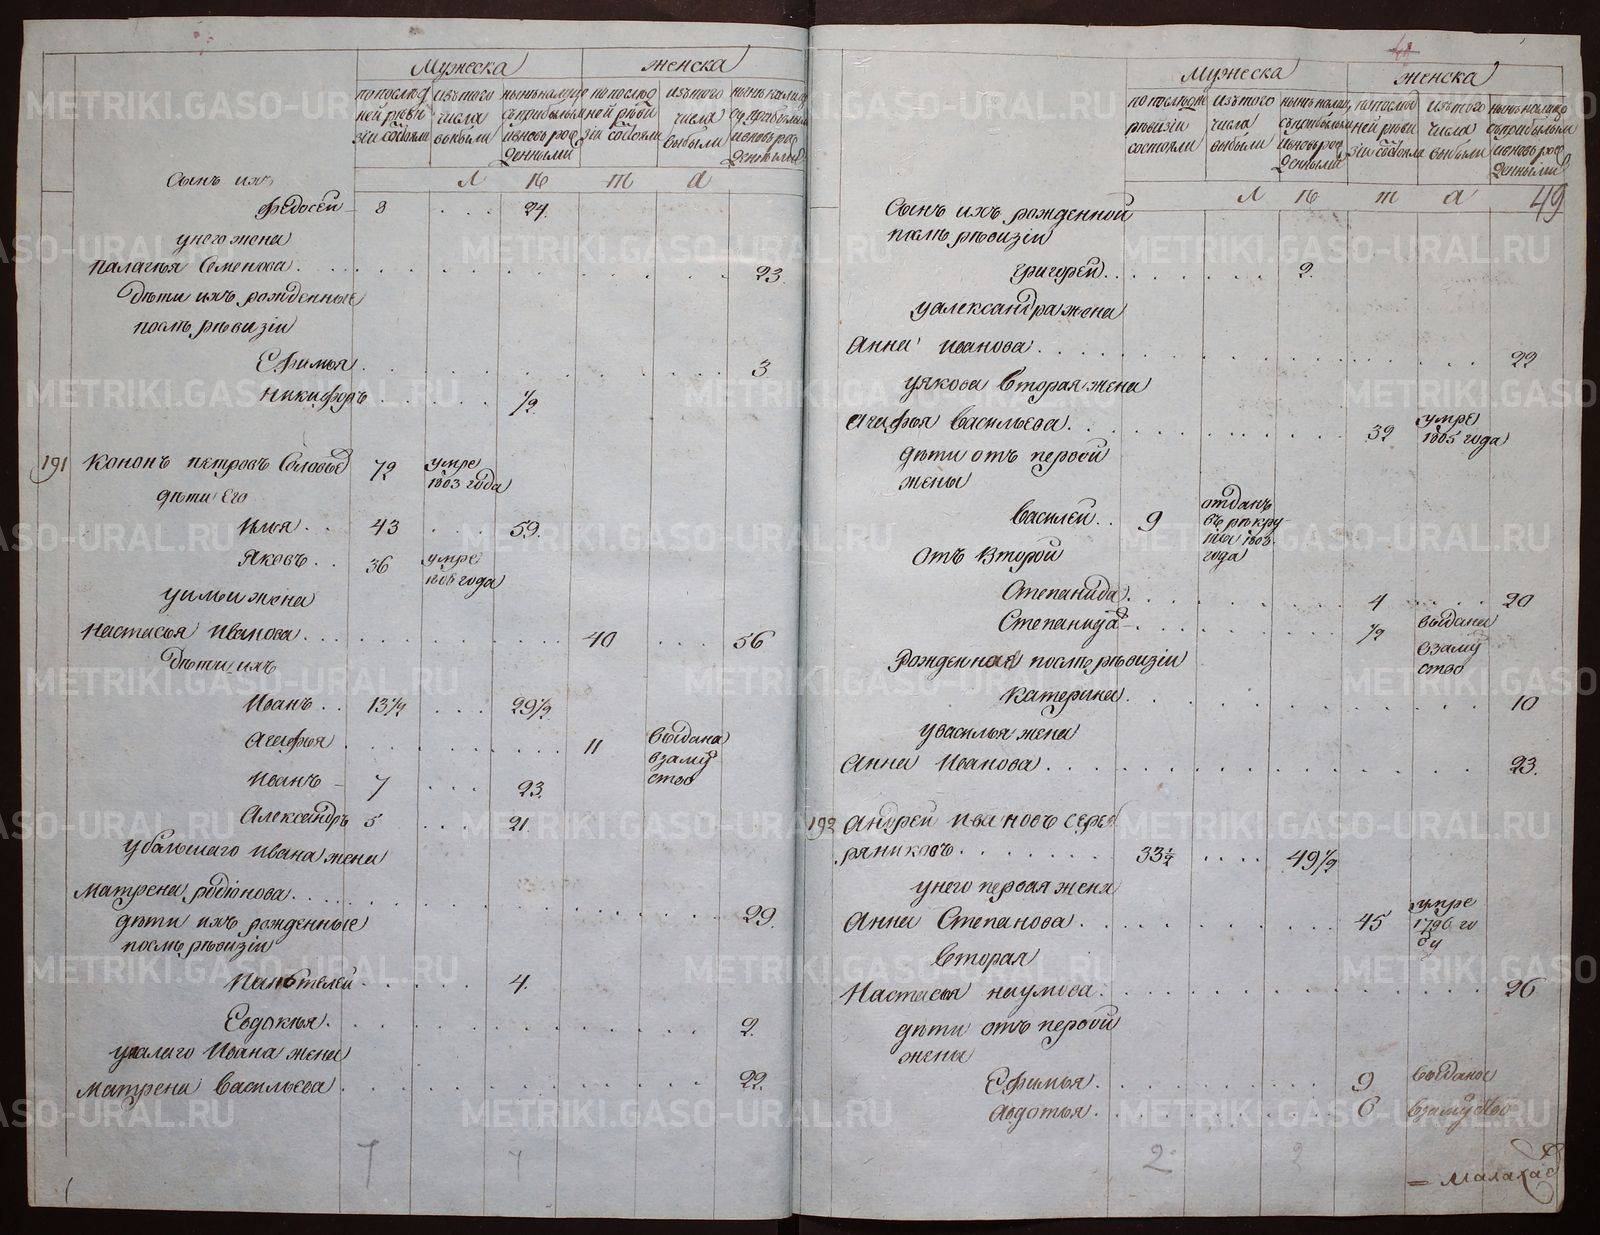 Мужеска
женска
по послѣд
ней реви
зіи состояли
изъ того
числа
выбыли
нынѣ налицо
съ прибылыми
и вновь рож
денными
по послѣд
ней реви
зіи состояли
изъ того
числа
выбыли
нынѣ налицо
съ прибылыми
и вновь рож
денными
Л ѣ т а
Сынъ ихъ
Федосей 8 24.
у него жена
Палагѣя Семенова 23.
дѣти ихъ рожденные
послѣ ревизіи
Ефимья 3
Никифоръ 1/2.
191 Кононъ Петровъ Соловьев 72 умре
1803 года
дѣти Его
Илья 43 59.
Яковъ 36 умре
1805 года
у ильи жена
Настасья Иванова 40 56
Дѣти ихъ
Иванъ 13 1/2 29 1/2
Агафья 11 выдана
в заму
ство
Иванъ 7 23.
Александръ 5 21.
у большаго ивана жена
Матрена родіонова 29.
дѣти ихъ рожденные
послѣ ревизіи
Пантелей 4.
Евдокья 2.
у малаго Ивана жена
Матрена Васильева 22.
7
Мужеска
женска
по последне
ревизіи
состояли
изъ того
числа
выбыли
нынѣ налицо
съ прибылыми
и вновь рож
денными
по послѣд
ней реви
зіи состояла
изъ того
числа
выбыли
нынѣ налицо
съ прибылыми
и вновь рож
денными
Л ѣ т а 49
Сынъ ихъ рожденной
послѣ ревизіи
Григорей 2.
у александра жена
Анна Иванова 22
у якова вторая жена
Агафья Васильева 32 умре
1805 года
дѣти отъ первой
жены
Василей 9 отданъ
въ рекру
ты 1803
года
Отъ второй
Степанида 4 20
Степанида 1/2 выдана
в заму
ство
Рожденная после ревизіи
Катерина 10
у василья жена
Анна Иванова 23.
192 Андрей Ивановъ сереб
ряниковъ 33 1/2 49 1/2
у него первая жена
Анна Степанова 45 умре
1796 го
ду
вторая
Настасья наумова 26
дѣти отъ первой
жены
Ефимья 9 выдана
Авдотья 6 в замуство
2
2
METRIKI.GASO-URAL.RU